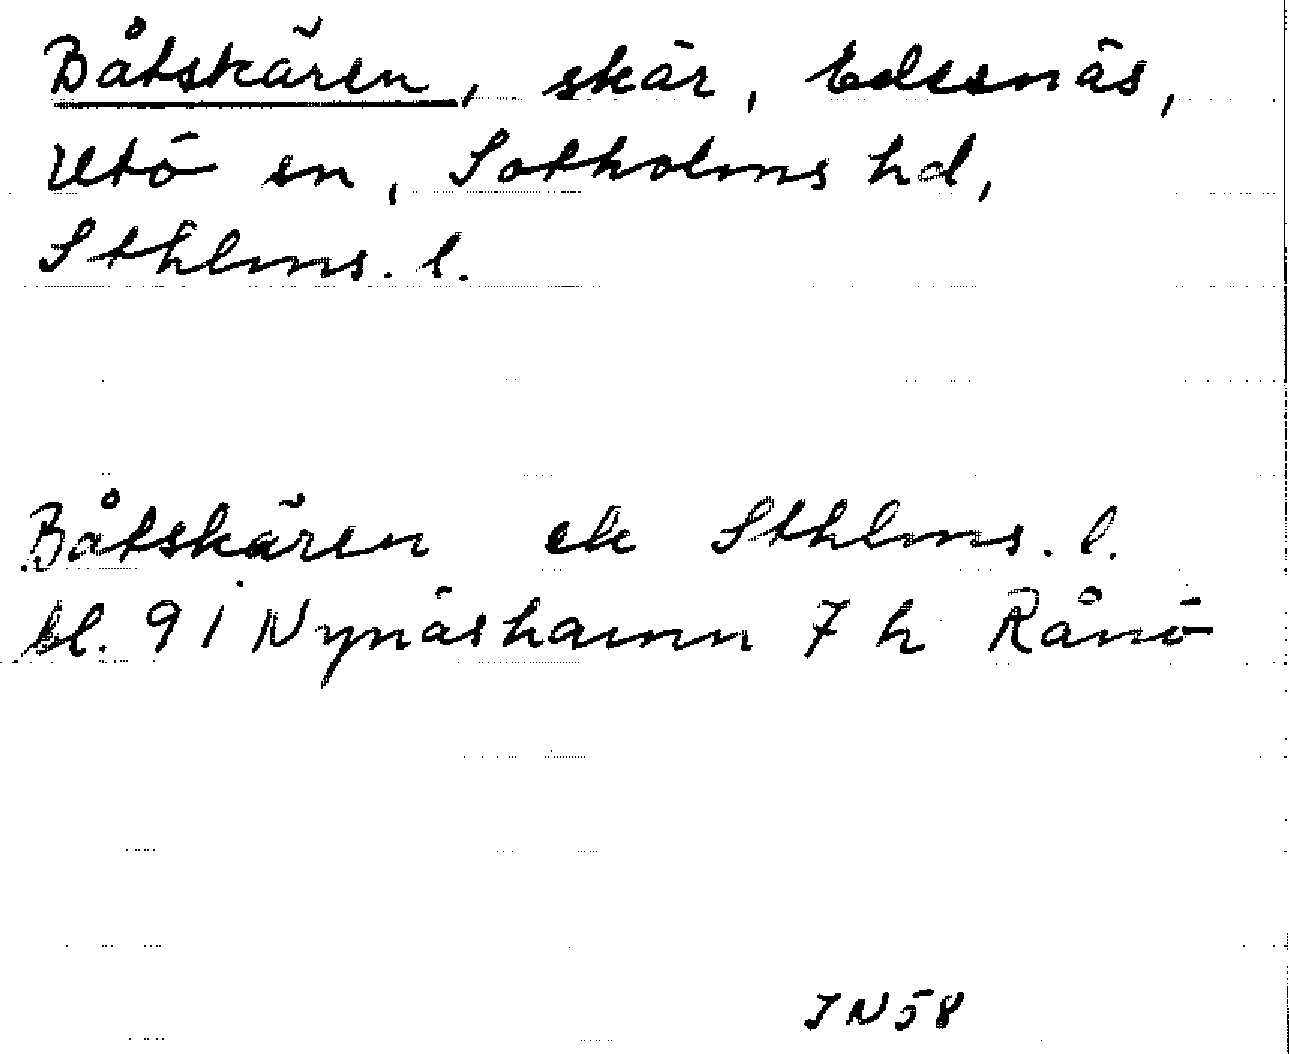 Båtskären, skär, Edesnäs,
Utö en, Sotholms hd,
Sthlms. l.
Båtskären ek Sthlms. l.
bl. 91 Nynäshamn 7 h Rånö
IN58